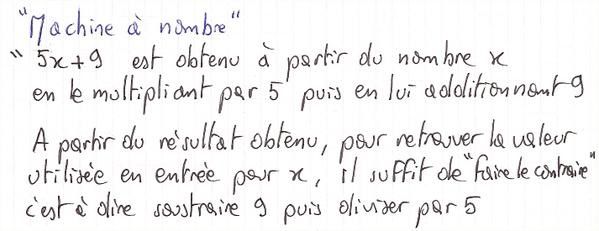 "Machine à nombre"
" 5x+9 est obtenu à partir du nombre x
en le multipliant par 5 puis en lui additionnant 9
A partir du résultat obtenu, pour retrouver la valeur
utilisée en entrée pour x, il suffit de "faire le contraire"
c'est à dire soustraire 9 puis diviser par 5